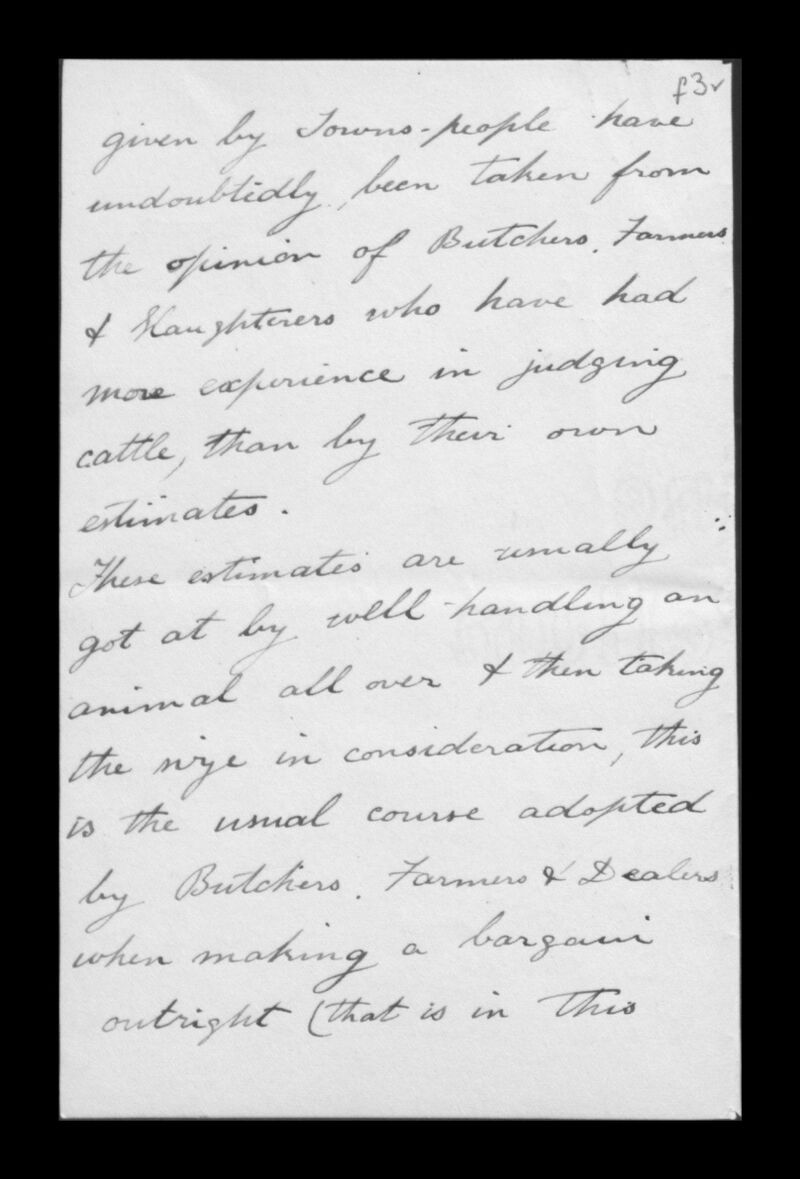 f3v
given by Towns-people have
undoubtidly, been taken from
the opinion of Butchers. Farmers
& Slaughterers who have had
more experience in judging
cattle, than by their own
estimates.
These estimates are usually
got at by well handling an
animal all over & then taking
the in consideration, this
is the usual course adopted
by Butchers. Farmers & Dealers
when making a bargain
outright (that is in this